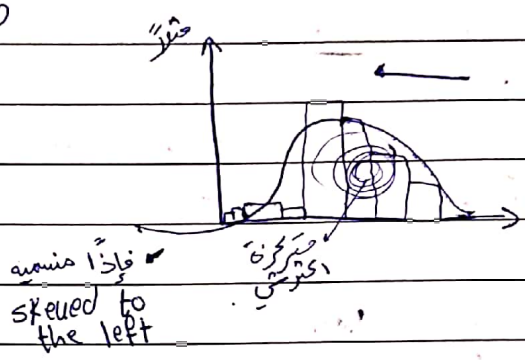 مثلاً
متمركزة
اكثرشي
فإذًا منسميه
skewed to
the left